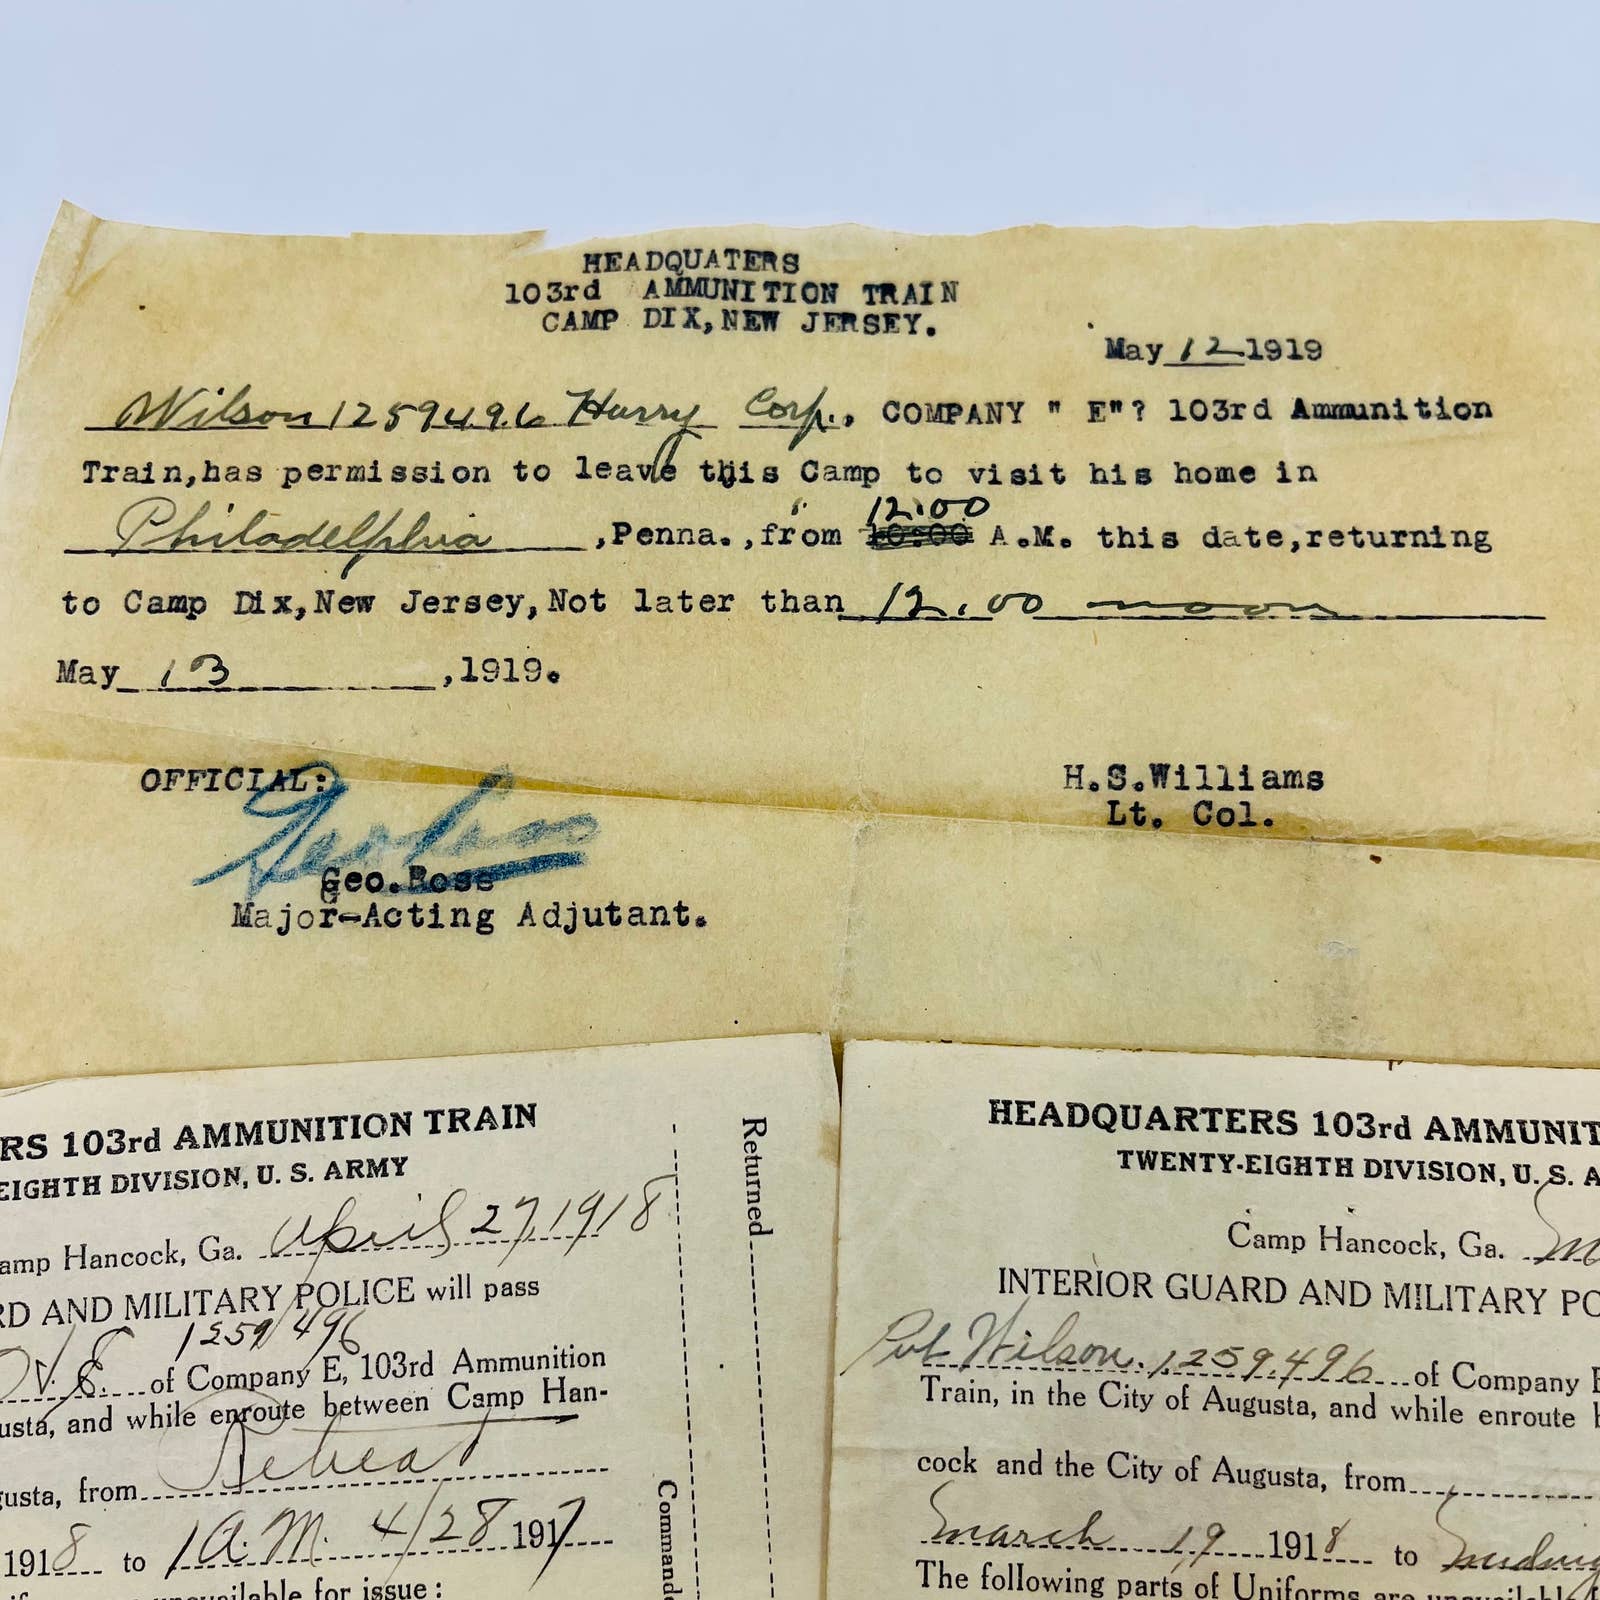 HEADQUATERS
103rd AMMUNITION TRAIN
CAMP DIX,NEW JERSEY.
May 12 1919
Wilson 1259496 Harry Corp., COMPANY " E"? 103rd Ammunition
Train,has permission to leave this Camp to visit his home in
12:00
Philadelphia ,Penna.,from 10:00 A.M. this date,returning
to Camp Dix,New Jersey,Not later than 12.00 noon
May 13 ,1919.
OFFICIAL:
H.S.Williams
Lt. Col.
Geo Ross
Geo.Ross
Major-Acting Adjutant.
RS 103rd AMMUNITION TRAIN
EIGHTH DIVISION, U. S. ARMY
amp Hancock, Ga. April 27, 1918
RD AND MILITARY POLICE will pass
1259496
of Company E, 103rd Ammunition
usta, and while enroute between Camp Han-
gusta, from Retreat
1918 to 1 A.M. 4/28 1917
unavailable for issue:
Returned
Commande
HEADQUARTERS 103rd AMMUNIT
TWENTY-EIGHTH DIVISION, U. S. A
Camp Hancock, Ga. M
INTERIOR GUARD AND MILITARY PO
Pvt Wilson. 1259496 of Company E
Train, in the City of Augusta, and while enroute b
cock and the City of Augusta, from
March 19 1918 to Midnig
The following parts of Uniforms are unavailable f